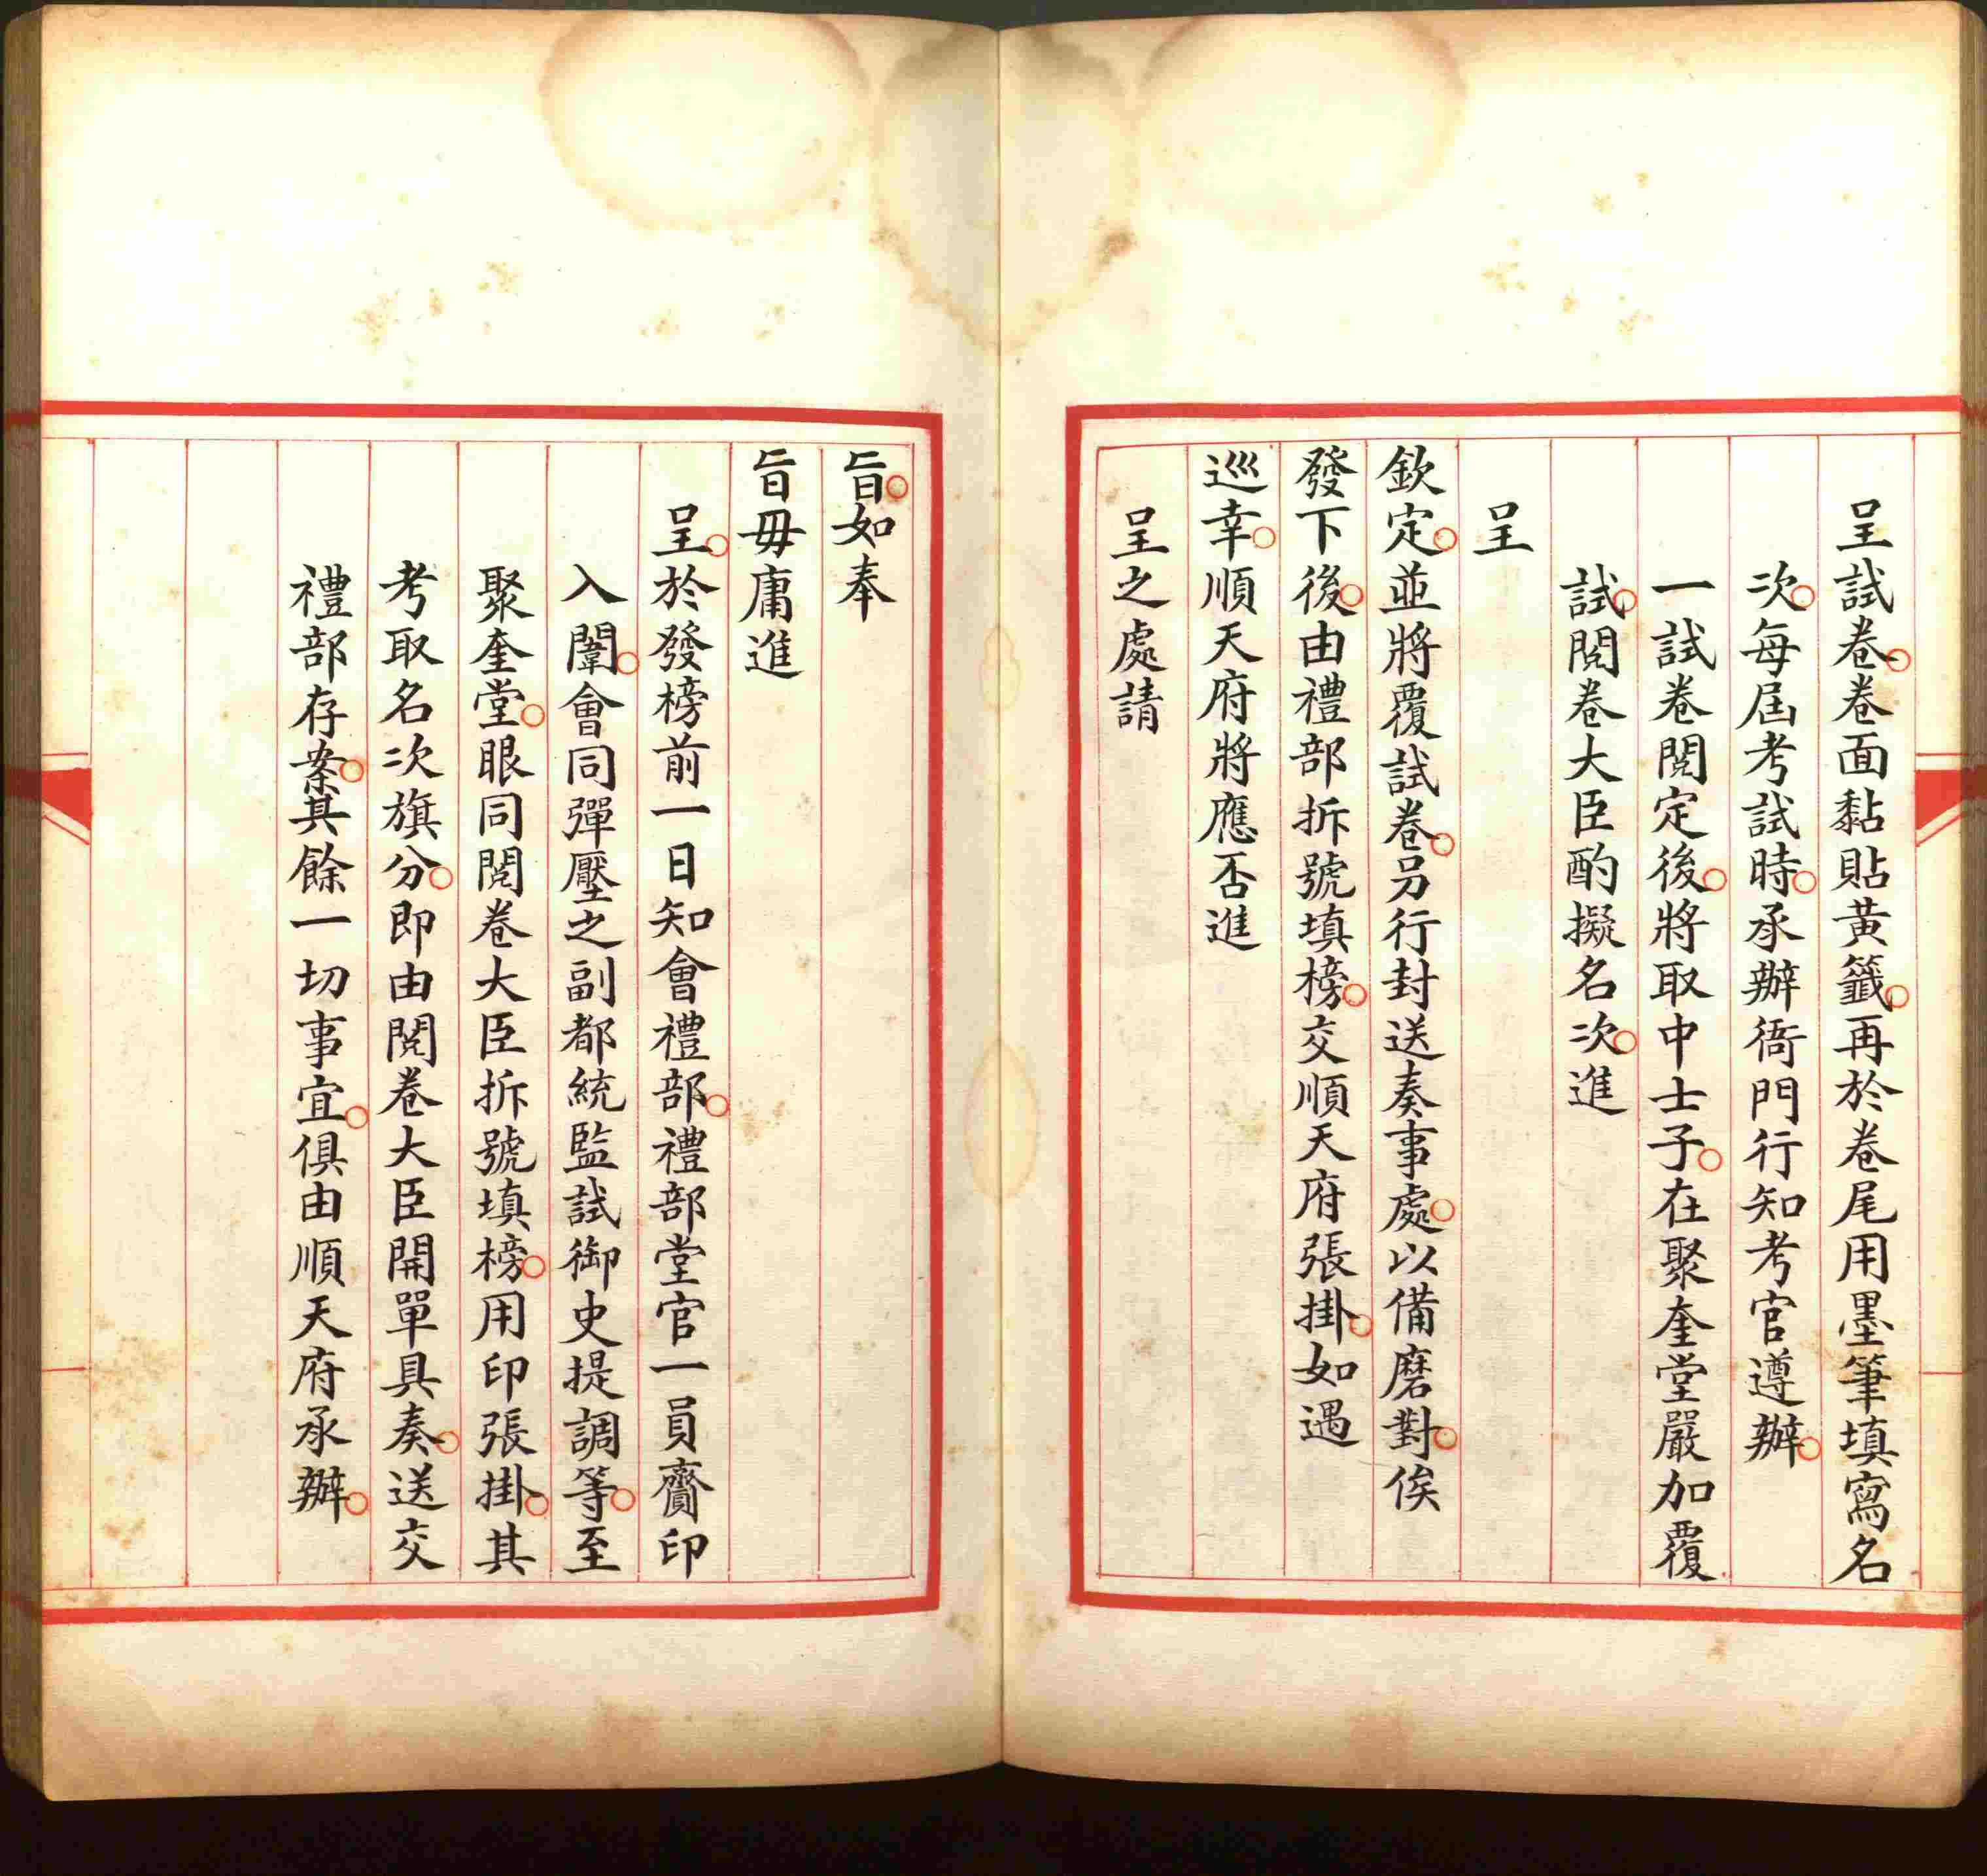 呈試卷○卷面黏貼黃籤○再於卷尾用墨筆填寫名
次○每屆考試時○承辦衙門行知考官遵辦○
一試卷閱定後○將取中士子○在聚奎堂嚴加覆
試○閱卷大臣酌擬名次○進
呈
欽定○並將覆試卷○另行封送奏事處○以備磨對○俟
發下後○由禮部拆號填榜○交順天府張掛○如遇
巡幸○順天府將應否進
呈之處請
旨○如奉
旨毋庸進
呈○於發榜前一日知會禮部○禮部堂官一員齎印
入闈○會同彈壓之副都統監試御史提調等○至
聚奎堂○眼同閱卷大臣拆號填榜○用印張掛○其
考取名次旗分○即由閱卷大臣開單具奏○送交
禮部存案○其餘一切事宜○俱由順天府承辦○